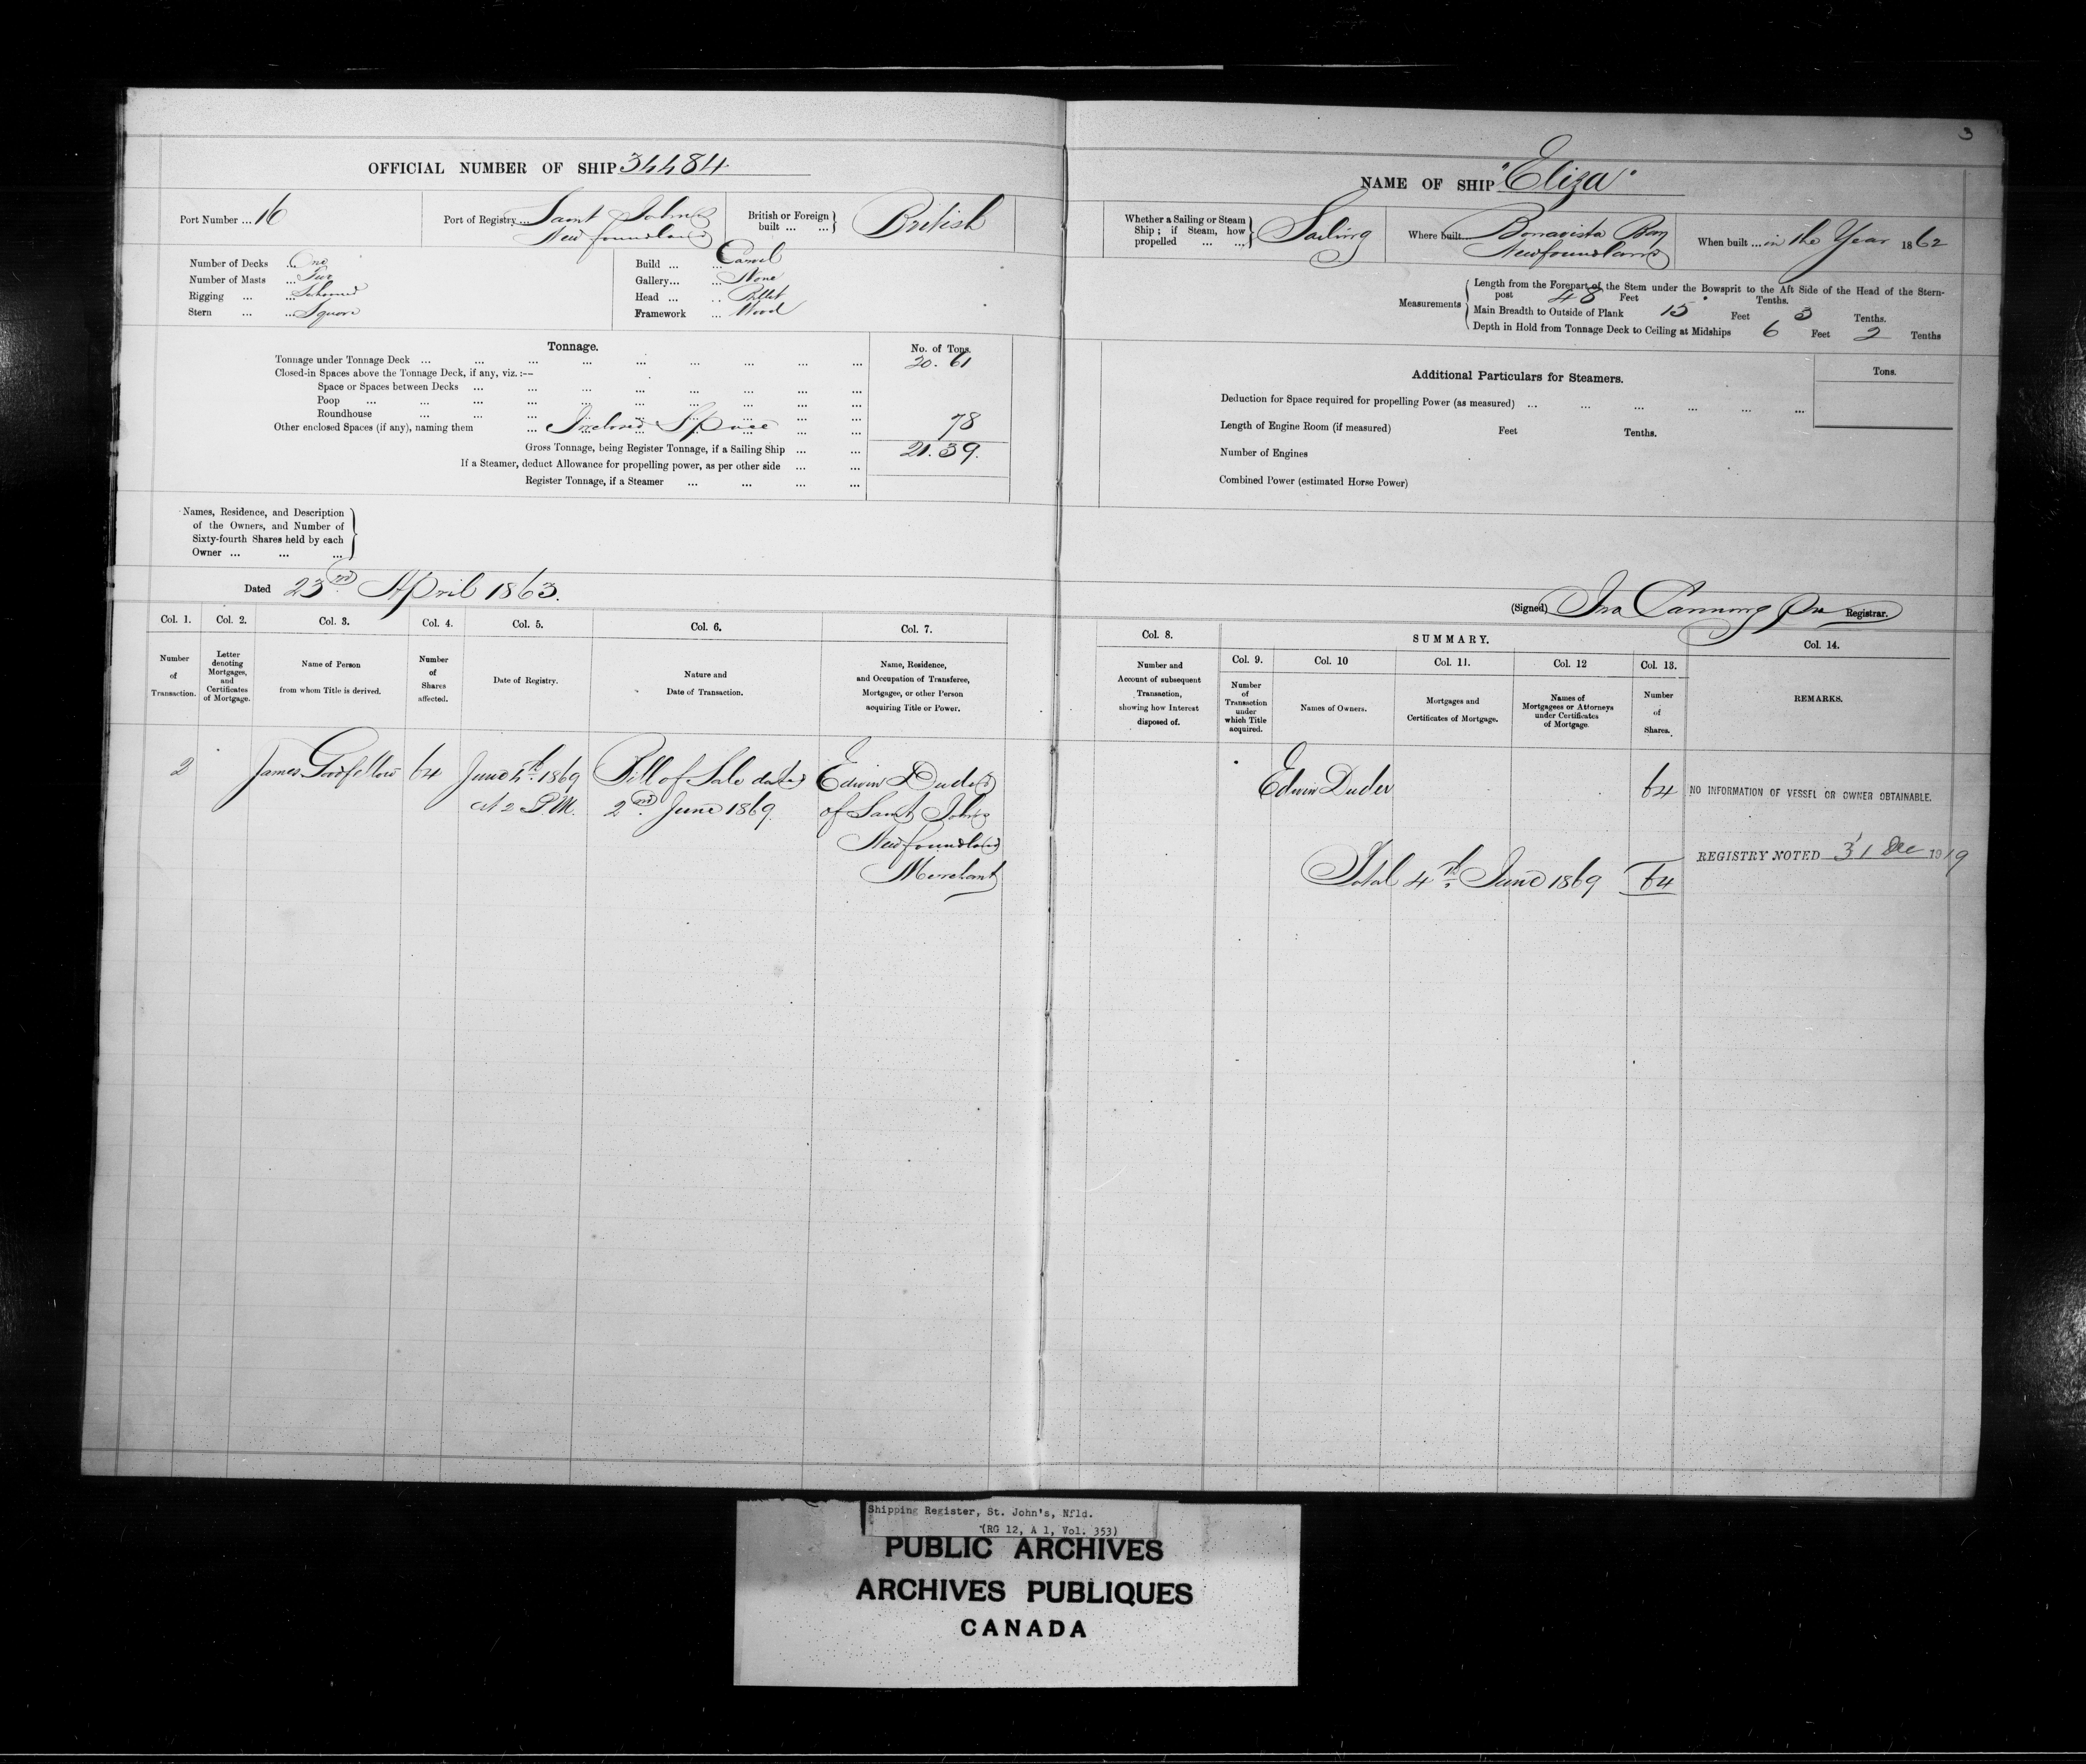 3
OFFICIAL NUMBER OF SHIP 34484
Port Number ... 16
Port of Registry ... Saint Johns
Newfoundland
British or Foreign built ... ... } British
Number of Decks ... One
Number of Masts ... Two
Rigging ... ... Schooner
Stern ... ... Square
Build ... ... Carvel
Gallery... ... None
Head ... ... Billet
Framework ... Wood
Tonnage.
No. of Tons.
Tonnage under Tonnage Deck ... ... ... ... ... ... ... ... ... 20.61
Closed-in Spaces above the Tonnage Deck, if any, viz.:—
Space or Spaces between Decks ... ... ... ... ... ... ... ...
Poop ... ... ... ... ... ... ... ... ... ...
Roundhouse ... ... ... ... ... ... ... ... ...
Other enclosed Spaces (if any), naming them ... Inclosed Space ... ... 78
Gross Tonnage, being Register Tonnage, if a Sailing Ship ... ... 21.39.
If a Steamer, deduct Allowance for propelling power, as per other side ... ...
Register Tonnage, if a Steamer ... ... ... ...
Names, Residence, and Description
of the Owners, and Number of
Sixty-fourth Shares held by each
Owner ... ... ...
Dated 23rd April 1863.
NAME OF SHIP "Eliza"
Whether a Sailing or Steam
Ship; if Steam, how
propelled ... ... } Sailing
Where built... Bonavista Bay
Newfoundland
When built ... in the Year 1862
Measurements
Length from the Forepart of the Stem under the Bowsprit to the Aft Side of the Head of the Stern-
post 48 Feet Tenths.
Main Breadth to Outside of Plank 15 Feet 3 Tenths.
Depth in Hold from Tonnage Deck to Ceiling at Midships 6 Feet 2 Tenths
Additional Particulars for Steamers.
Tons.
Deduction for Space required for propelling Power (as measured) ... ... ... ... ... ...
Length of Engine Room (if measured) Feet Tenths.
Number of Engines
Combined Power (estimated Horse Power)
(Signed) Canning Registrar.
Col. 1.
Number
of
Transaction.
Col. 2.
Letter
denoting
Mortgages,
and
Certificates
of Mortgage.
Col. 3.
Name of Person
from whom Title is derived.
Col. 4.
Number
of
Shares
affected.
Col. 5.
Date of Registry.
Col. 6.
Nature and
Date of Transaction.
Col. 7.
Name, Residence,
and Occupation of Transferee,
Mortgagee, or other Person
acquiring Title or Power.
Col. 8.
Number and
Account of subsequent
Transaction,
showing how Interest
disposed of.
SUMMARY.
Col. 9.
Number
of
Transaction
under
which Title
acquired.
Col. 10
Names of Owners.
Col. 11.
Mortgages and
Certificates of Mortgage.
Col. 12
Names of
Mortgagees or Attorneys
under Certificates
of Mortgage.
Col. 13.
Number
of
Shares.
Col. 14.
REMARKS.
2
James Goodfellow
64
June 4th 1869
At 2 P.M.
Bill of Sale dated
2nd June 1869.
Edwin Duder
of Saint Johns
Newfoundland
Merchant
Edwin Duder
64
Total 4th June 1869 64
NO INFORMATION OF VESSEL OR OWNER OBTAINABLE.
REGISTRY NOTED 31 Dec 1919
Shipping Register, St. John's, Nfld.
(RG 12, A 1, Vol. 353)
PUBLIC ARCHIVES
ARCHIVES PUBLIQUES
CANADA